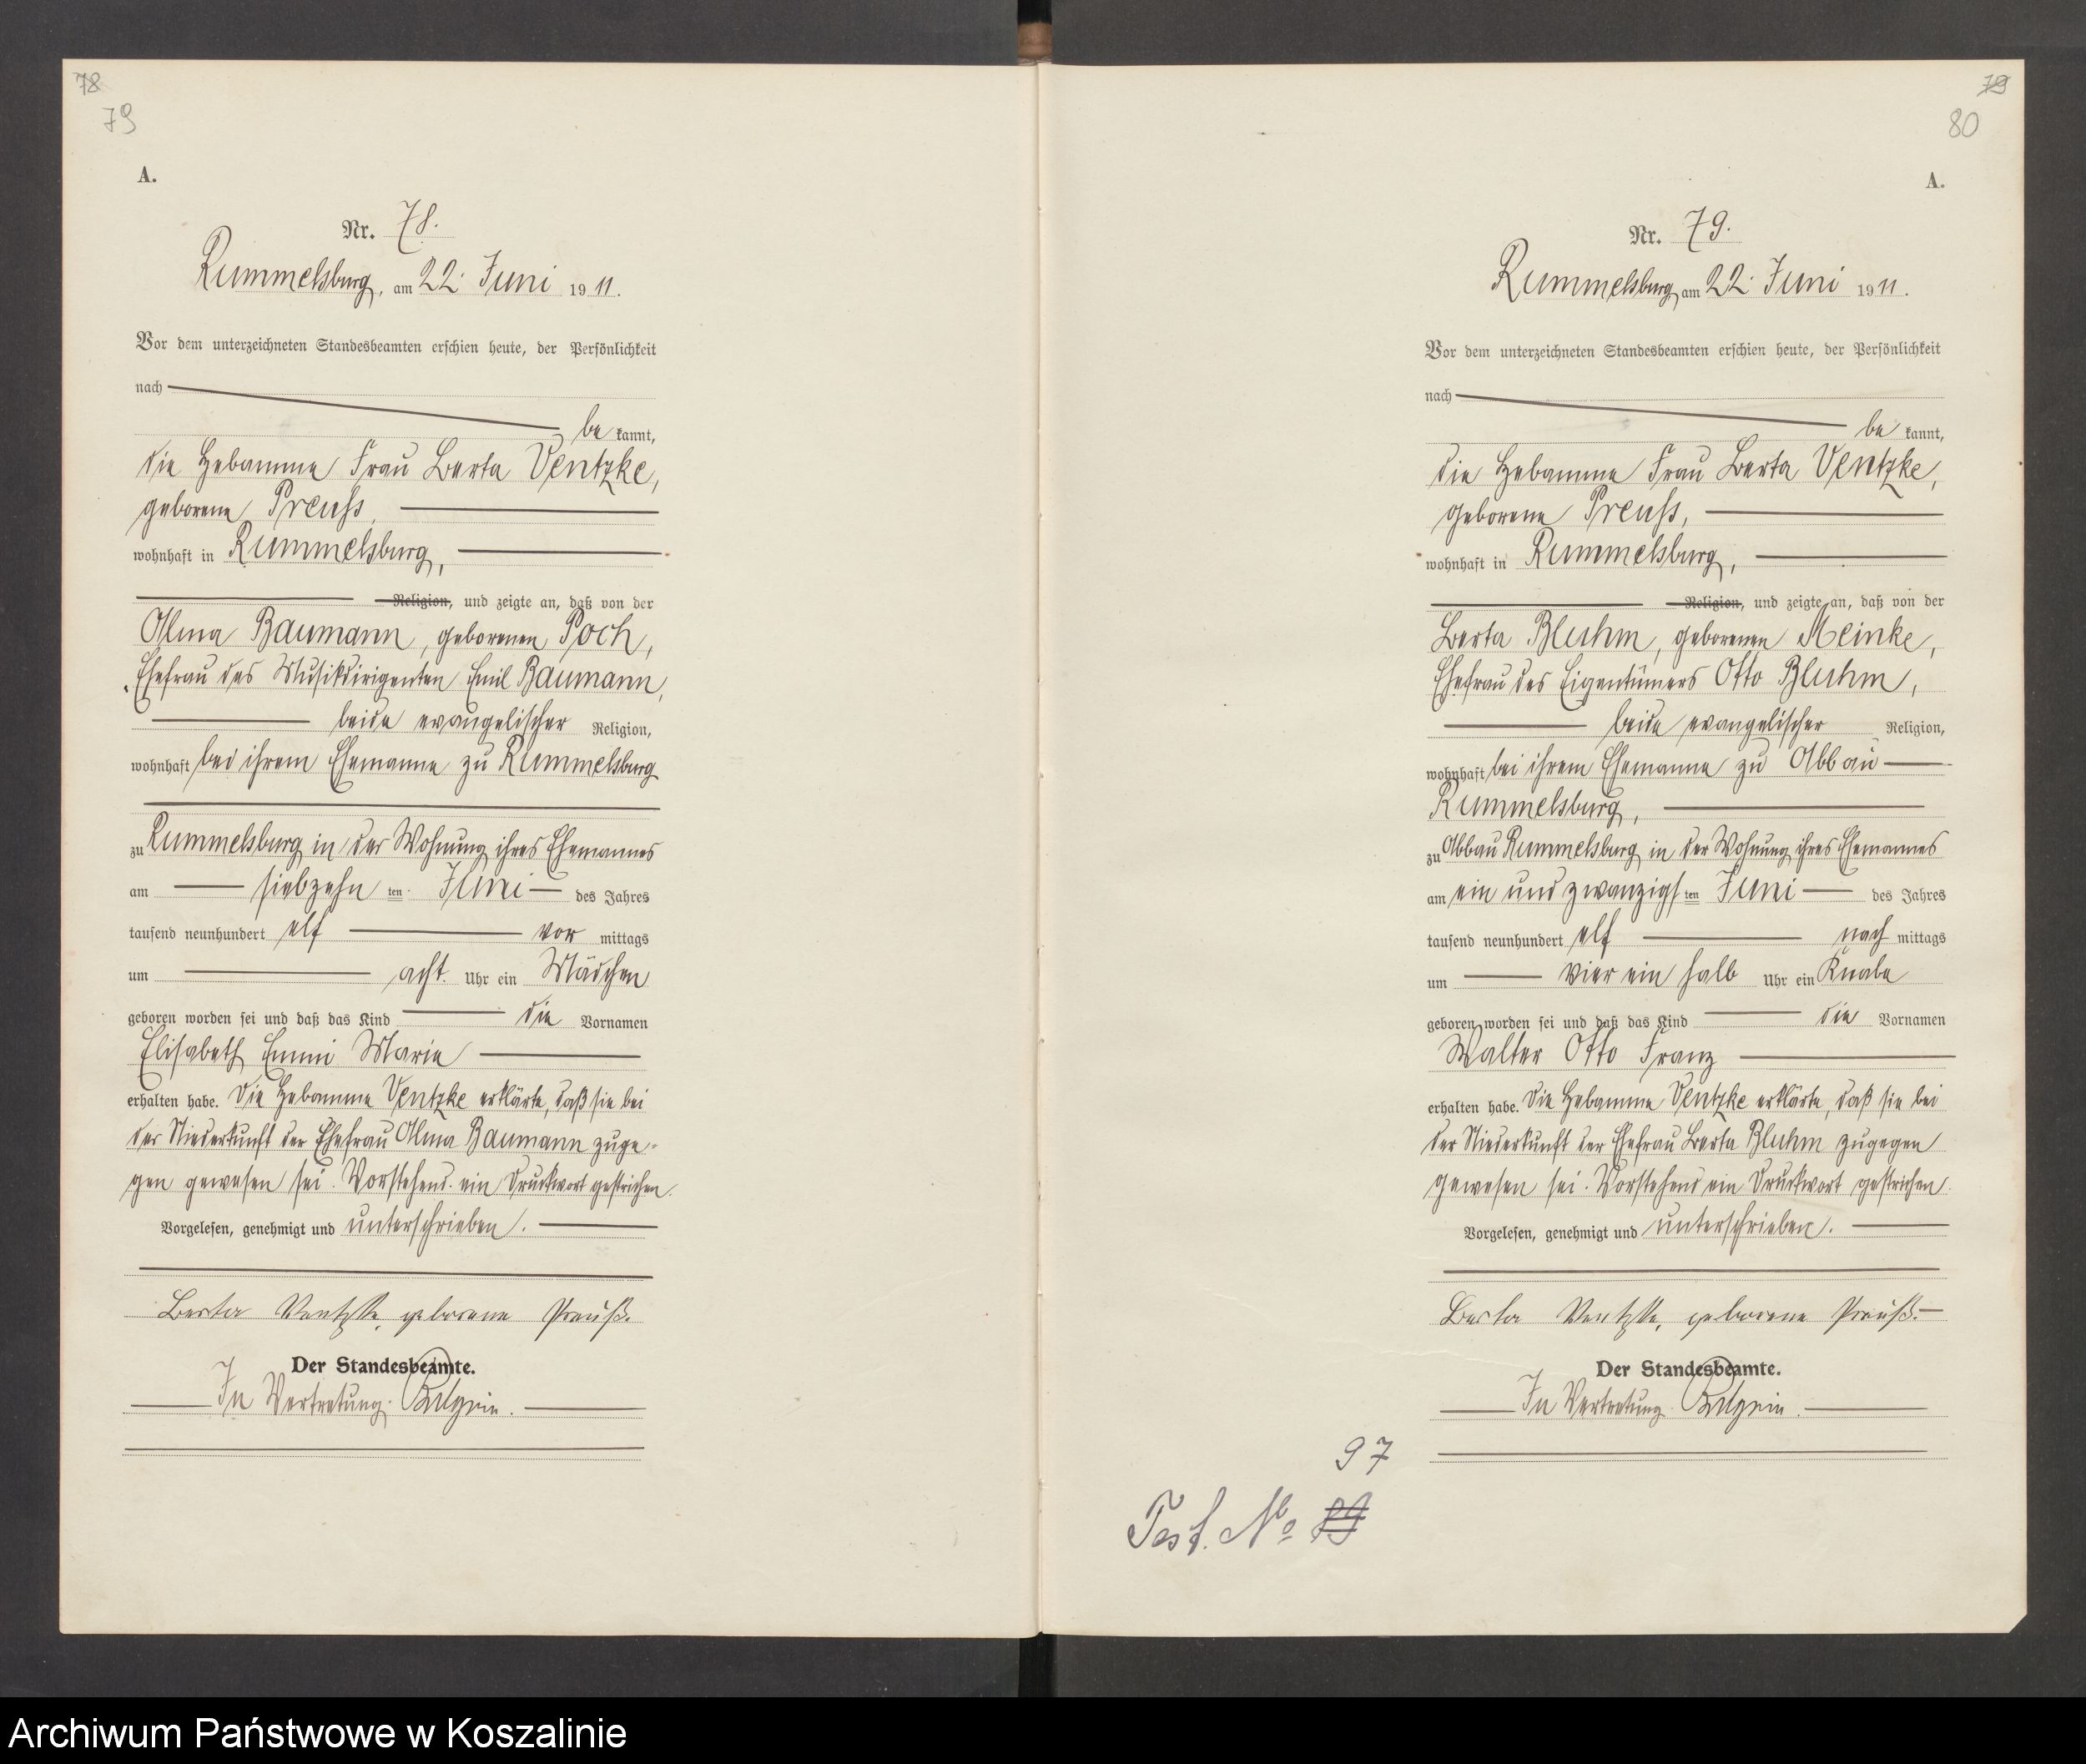 78
79
A.
Nr. 78.
Rummelsburg, am 22. Juni 1911.
Vor dem unterzeichneten Standesbeamten erschien heute, der Persönlichkeit
nach
be kannt,
die Hebamme Frau Berta Ventzke,
geborene Preuß,
wohnhaft in Rummelsburg,
Religion, und zeigte an, daß von der
Alma Baumann, geborenen Poch,
Ehefrau des Musikdirigenten Emil Baumann,
beide evangelischer Religion,
wohnhaft bei ihrem Ehemanne zu Rummelsburg
zu Rummelsburg in der Wohnung ihres Ehemannes
am siebzehn ten Juni des Jahres
tausend neunhundert elf vor mittags
um acht Uhr ein Mädchen
geboren worden sei und daß das Kind die Vornamen
Elisabeth Emmi Marie
erhalten habe. Die Hebamme Ventzke erklärte, daß sie bei
der Niederkunft der Ehefrau Alma Baumann zuge-
gen gewesen sei. Vorstehend ein Druckwort gestrichen.
Vorgelesen, genehmigt und unterschrieben.
Berta Ventzke, geborene Preuß.
Der Standesbeamte.
In Vertretung.
79
80
A.
Nr. 79.
Rummelsburg, am 22. Juni 1911.
Vor dem unterzeichneten Standesbeamten erschien heute, der Persönlichkeit
nach
be kannt,
die Hebamme Frau Berta Ventzke,
geborene Preuß,
wohnhaft in Rummelsburg,
Religion, und zeigte an, daß von der
Berta Bluhm, geborenen Meinke,
Ehefrau des Eigentümers Otto Bluhm,
beide evangelischer Religion,
wohnhaft bei ihrem Ehemanne zu Abbau
Rummelsburg,
zu Abbau Rummelsburg in der Wohnung ihres Ehemannes
am ein und zwanzigsten Juni des Jahres
tausend neunhundert elf nach mittags
um vier ein halb Uhr ein Knabe
geboren worden sei und daß das Kind die Vornamen
Walter Otto Franz
erhalten habe. Die Hebamme Ventzke erklärte, daß sie bei
der Niederkunft der Ehefrau Berta Bluhm zugegen
gewesen sei. Vorstehend ein Druckwort gestrichen.
Vorgelesen, genehmigt und unterschrieben.
Berta Ventzke, geborene Preuß.
Der Standesbeamte.
In Vertretung.
97
Test. No
Archiwum Państwowe w Koszalinie